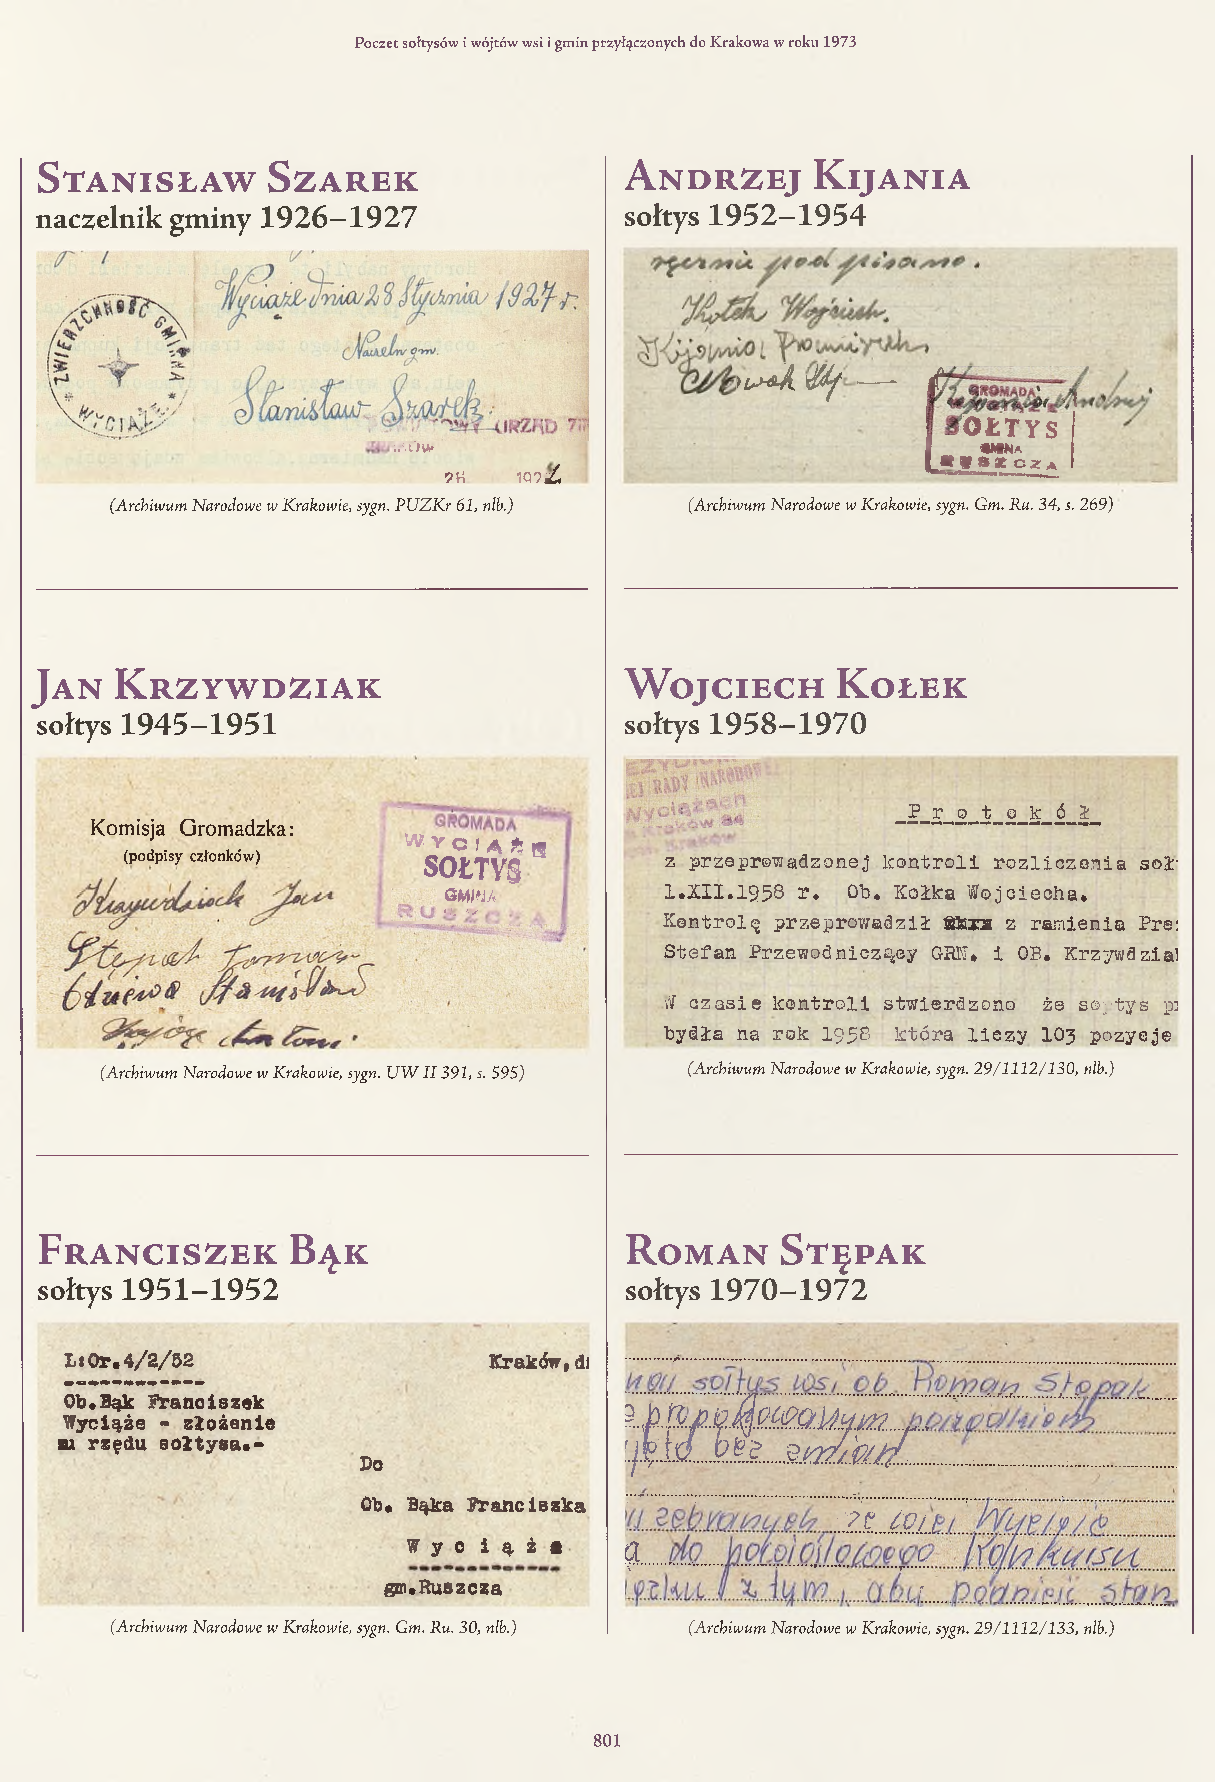 Poczet sołtysów i wójtów wsi i gmin przyłączonych do Krakowa w roku 1973
Stanisław Szarek
naczelnik gminy 1926–1927
Wyciąże dnia 28 Stycznia 1927 r.
ZWIERZCHNOŚĆ GMINNA
* WYCIĄŻE *
Naczeln gm.
Stanisław Szarek
URZĄD
28 192
(Archiwum Narodowe w Krakowie, sygn. PUZKr 61, nlb.)
Jan Krzywdziak
sołtys 1945–1951
Komisja Gromadzka:
(podpisy członków)
GROMADA
WYCIĄŻE
SOŁTYS
GMINA
RUSZCZA
Krzywdziak Jan
Stępak Tomasz
Stanisław
Antoni
(Archiwum Narodowe w Krakowie, sygn. UW II 391, s. 595)
Franciszek Bąk
sołtys 1951–1952
L:Or.4/2/52 Kraków, d
Ob.Bąk Franciszek
Wyciąże - złożenie
rzędu sołtysa.-
Do
Ob. Bąka Franciszka
Wyciąże
gm.Ruszcza
(Archiwum Narodowe w Krakowie, sygn. Gm. Ru. 30, nlb.)
Andrzej Kijania
sołtys 1952–1954
ręcznie pod pisano.
Kołek Wojciech.
Kijania Franciszek
Nowak
Kijania Andrzej
GROMADA
SOŁTYS
GMINA
RUSZCZA
(Archiwum Narodowe w Krakowie, sygn. Gm. Ru. 34, s. 269)
Wojciech Kołek
sołtys 1958–1970
EJ RADY NARODOWEJ
Wyciążach
Kraków 34
Protokół
z przeprowadzonej kontroli rozliczenia soł
1.XII.1958 r. Ob. Kołka Wojciecha.
Kontrolę przeprowadził z ramienia Pre
Stefan Przewodniczący GRN. i OB. Krzywdzia
W czasie kontroli stwierdzono że sołtys p
bydła na rok 1958 która liczy 103 pozycje
(Archiwum Narodowe w Krakowie, sygn. 29/1112/130, nlb.)
Roman Stępak
sołtys 1970–1972
sołtys wsi ob. Roman Stępak
proponowanym porządkiem
jęto bez zmian
zebranych ze wsi Wyciąże
a do Konkursu
z tym, aby podnieść stan
(Archiwum Narodowe w Krakowie, sygn. 29/1112/133, nlb.)
801